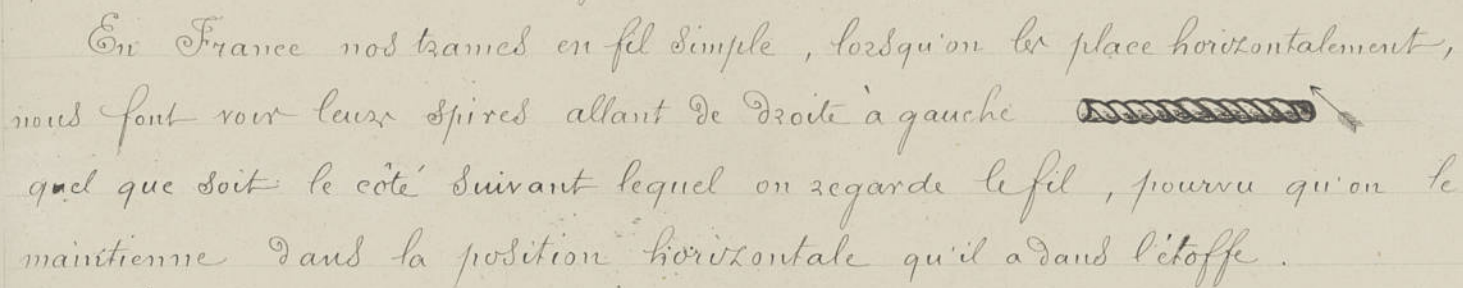 En France nos trames en fil simple, lorsqu'on les place horizontalement,
nous font voir leurs spires allant de droite à gauche
quel que soit le côté suivant lequel on regarde le fil, pourvu qu'on le
maintienne dans la position horizontale qu'il a dans l'étoffe.